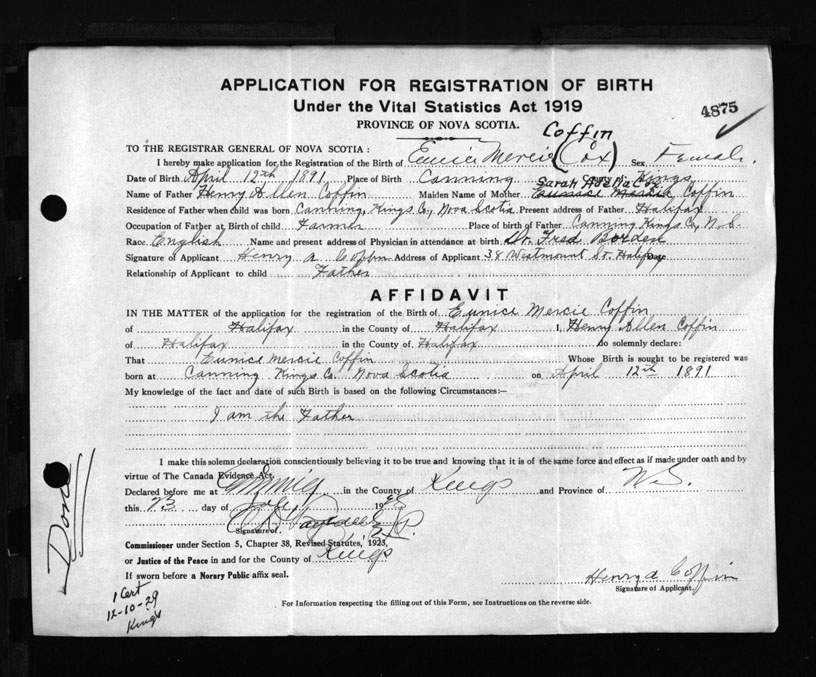 APPLICATION FOR REGISTRATION OF BIRTH
Under the Vital Statistics Act 1919
4875
PROVINCE OF NOVA SCOTIA.
Coffin
TO THE REGISTRAR GENERAL OF NOVA SCOTIA:
I hereby make application for the Registration of the Birth of Eunice Mercie (Cox) Sex Female.
Date of Birth April 12th 1891 Place of Birth Canning County of Kings
Sarah Ada Cox
Name of Father Henry Allen Coffin Maiden Name of Mother Eunice Mercie Coffin
Residence of Father when child was born Canning, Kings Co, Nova Scotia Present address of Father Halifax
Occupation of Father at Birth of child Farmer Place of birth of Father Canning Kings Co, N.S.
Race English Name and present address of Physician in attendance at birth Dr. Fred Borden
Signature of Applicant Henry A Coffin Address of Applicant 38 Westmount St. Halifax Date
Relationship of Applicant to child Father
AFFIDAVIT
IN THE MATTER of the application for the registration of the Birth of Eunice Mercie Coffin
of Halifax in the County of Halifax I, Henry Allen Coffin
of Halifax in the County of Halifax do solemnly declare:
That Eunice Mercie Coffin Whose Birth is sought to be registered was
born at Canning Kings Co. Nova Scotia on April 12th 1891
My knowledge of the fact and date of such Birth is based on the following Circumstances:—
I am the Father
I make this solemn declaration conscientiously believing it to be true and knowing that it is of the same force and effect as if made under oath and by
virtue of The Canada Evidence Act.
Declared before me at in the County of Kings and Province of N.S.
this day of 19
Signature of
Commissioner under Section 5, Chapter 38, Revised Statutes, 1923,
or Justice of the Peace in and for the County of Kings
If sworn before a Norary Public affix seal.
Henry A Coffin
Signature of Applicant.
For Information respecting the filling out of this Form, see Instructions on the reverse side.
Done
1 Cert
12-10-29
Kings